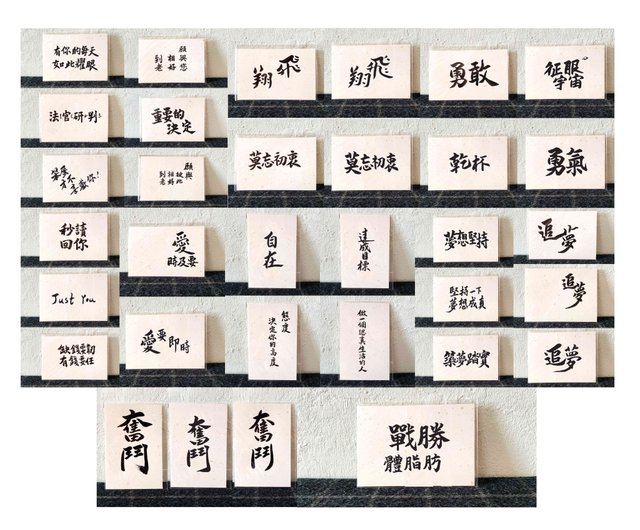 有你的每天
如此耀眼
願與您
相好
到老
飛
翔
飛
翔
勇敢
征服
宇宙
法官研判
重要的
決定
願與
彼此
相好
到老
莫忘初衷
莫忘初衷
乾杯
勇氣
秒讀
回你
愛
時及要
自在
達成目標
夢想堅持
追夢
Just You
愛要即時
態度
決定你的高度
做一個認真生活的人
堅持一下
夢想成真
追夢
缺錢要韌
有錢要任
築夢踏實
追夢
奮鬥
奮鬥
奮鬥
戰勝
體脂肪